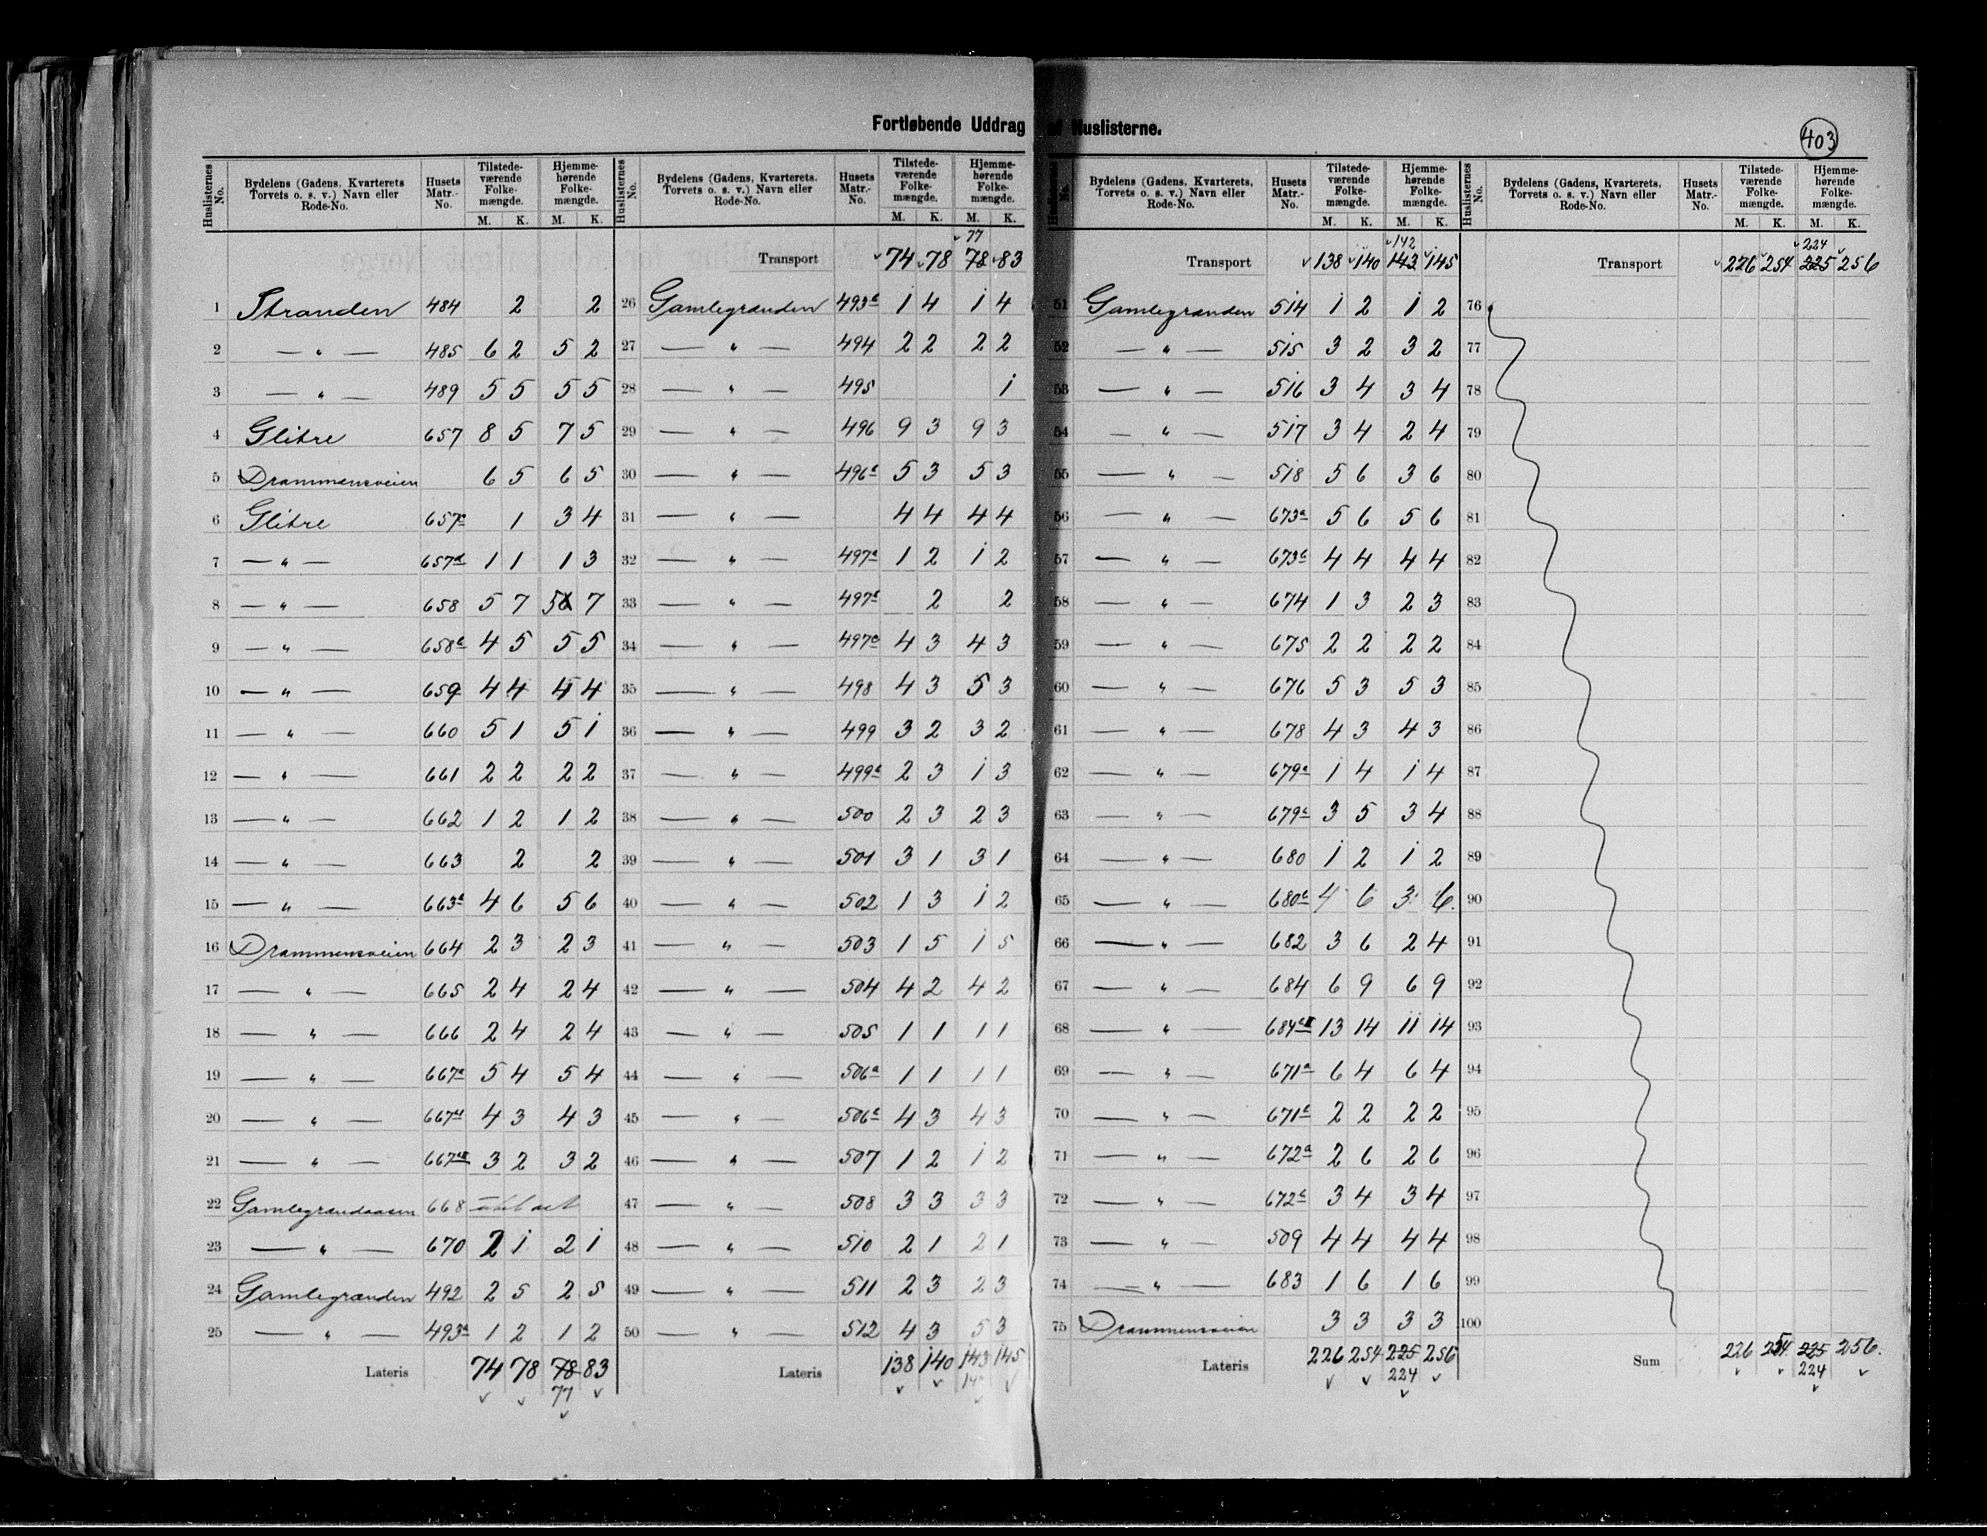 Fortløbende Uddrag af Huslisterne.
403
Huslisternes No. | Bydelens (Gadens, Kvarterets Torvets o. s. v.) Navn eller Rode-No. | Husets Matr.-No. | Tilstedeværende Folkemængde. M. K. | Hjemmehørende Folkemængde. M. K.
1 Stranden 484 2 2
2 — " — 485 6 2 5 2
3 — " — 489 5 5 5 5
4 Glitre 657 8 5 7 5
5 Drammensveien 6 5 6 5
6 Glitre 657c 1 3 4
7 — " — 657d 1 1 1 3
8 — " — 658 5 7 5 7
9 — " — 658b 4 5 5 5
10 — " — 659 4 4 4 4
11 — " — 660 5 1 5 1
12 — " — 661 2 2 2 2
13 — " — 662 1 2 1 2
14 — " — 663 2 2
15 — " — 663a 4 6 5 6
16 Drammensveien 664 2 3 2 3
17 — " — 665 2 4 2 4
18 — " — 666 2 4 2 4
19 — " — 667a 5 4 5 4
20 — " — 667 4 3 4 3
21 — " — 667 3 2 3 2
22 Gamlegrændaasen 668 ubeboet
23 — " — 670 2 1 2 1
24 Gamlegrænden 492 2 5 2 5
25 — " — 493a 1 2 1 2
Lateris 74 78 78 83
77
Huslisternes No. | Bydelens (Gadens, Kvarterets Torvets o. s. v.) Navn eller Rode-No. | Husets Matr.-No. | Tilstedeværende Folkemængde. M. K. | Hjemmehørende Folkemængde. M. K.
77
Transport 74 78 78 83
26 Gamlegrænden 493b 1 4 1 4
27 — " — 494 2 2 2 2
28 — " — 495 1
29 — " — 496 9 3 9 3
30 — " — 496b 5 3 5 3
31 — " — 4 4 4 4
32 — " — 497a 1 2 1 2
33 — " — 497b 2 2
34 — " — 497c 4 3 4 3
35 — " — 498 4 3 5 3
36 — " — 499 3 2 3 2
37 — " — 499b 2 3 1 3
38 — " — 500 2 3 2 3
39 — " — 501 3 1 3 1
40 — " — 502 1 3 1 2
41 — " — 503 1 5 1 5
42 — " — 504 4 2 4 2
43 — " — 505 1 1 1 1
44 — " — 506a 1 1 1 1
45 — " — 506b 4 3 4 3
46 — " — 507 1 2 1 2
47 — " — 508 3 3 3 3
48 — " — 510 2 1 2 1
49 — " — 511 2 3 2 3
50 — " — 512 4 3 5 3
Lateris 138 140 143 145
Huslisternes No. | Bydelens (Gadens, Kvarterets, Torvets o. s. v.) Navn eller Rode-No. | Husets Matr.-No. | Tilstedeværende Folkemængde. M. K. | Hjemmehørende Folkemængde. M. K.
142
Transport 138 140 143 145
51 Gamlegrænden 514 1 2 1 2
52 — " — 515 3 2 3 2
53 — " — 516 3 4 3 4
54 — " — 517 3 4 2 4
55 — " — 518 5 6 3 6
56 — " — 673a 5 6 5 6
57 — " — 673b 4 4 4 4
58 — " — 674 1 3 2 3
59 — " — 675 2 2 2 2
60 — " — 676 5 3 5 3
61 — " — 678 4 3 4 3
62 — " — 679a 1 4 1 4
63 — " — 679b 3 5 3 4
64 — " — 680 1 2 1 2
65 — " — 680b 4 6 3 6
66 — " — 682 3 6 2 4
67 — " — 684 6 9 6 9
68 — " — 684 13 14 11 14
69 — " — 671a 6 4 6 4
70 — " — 671b 2 2 2 2
71 — " — 672a 2 6 2 6
72 — " — 672b 3 4 3 4
73 — " — 509 4 4 4 4
74 — " — 683 1 6 1 6
75 Drammensveien 3 3 3 3
Lateris 226 254 225 256
224
Huslisternes No. | Bydelens (Gadens, Kvarterets, Torvets o. s. v.) Navn eller Rode-No. | Husets Matr.-No. | Tilstedeværende Folkemængde. M. K. | Hjemmehørende Folkemængde. M. K.
224
Transport 226 254 225 256
76
77
78
79
80
81
82
83
84
85
86
87
88
89
90
91
92
93
94
95
96
97
98
99
100
Sum 226 254 225 256.
224